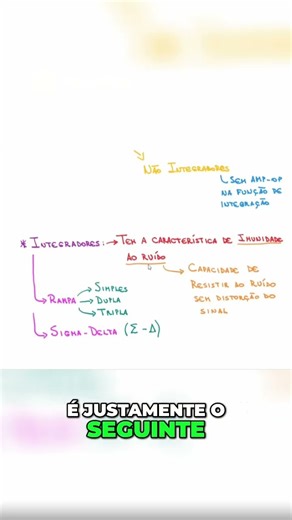 NÃO INTEGRADORES
SEM AMP-OP
NA FUNÇÃO DE
INTEGRAÇÃO
* INTEGRADORES: → TEM A CARACTERÍSTICA DE IMUNIDADE
AO RUÍDO
CAPACIDADE DE
RESISTIR AO RUÍDO
SEM DISTORÇÃO DO
SINAL
RAMPA
SIMPLES
DUPLA
TRIPLA
SIGMA-DELTA (Σ-Δ)
É JUSTAMENTE O
SEGUINTE